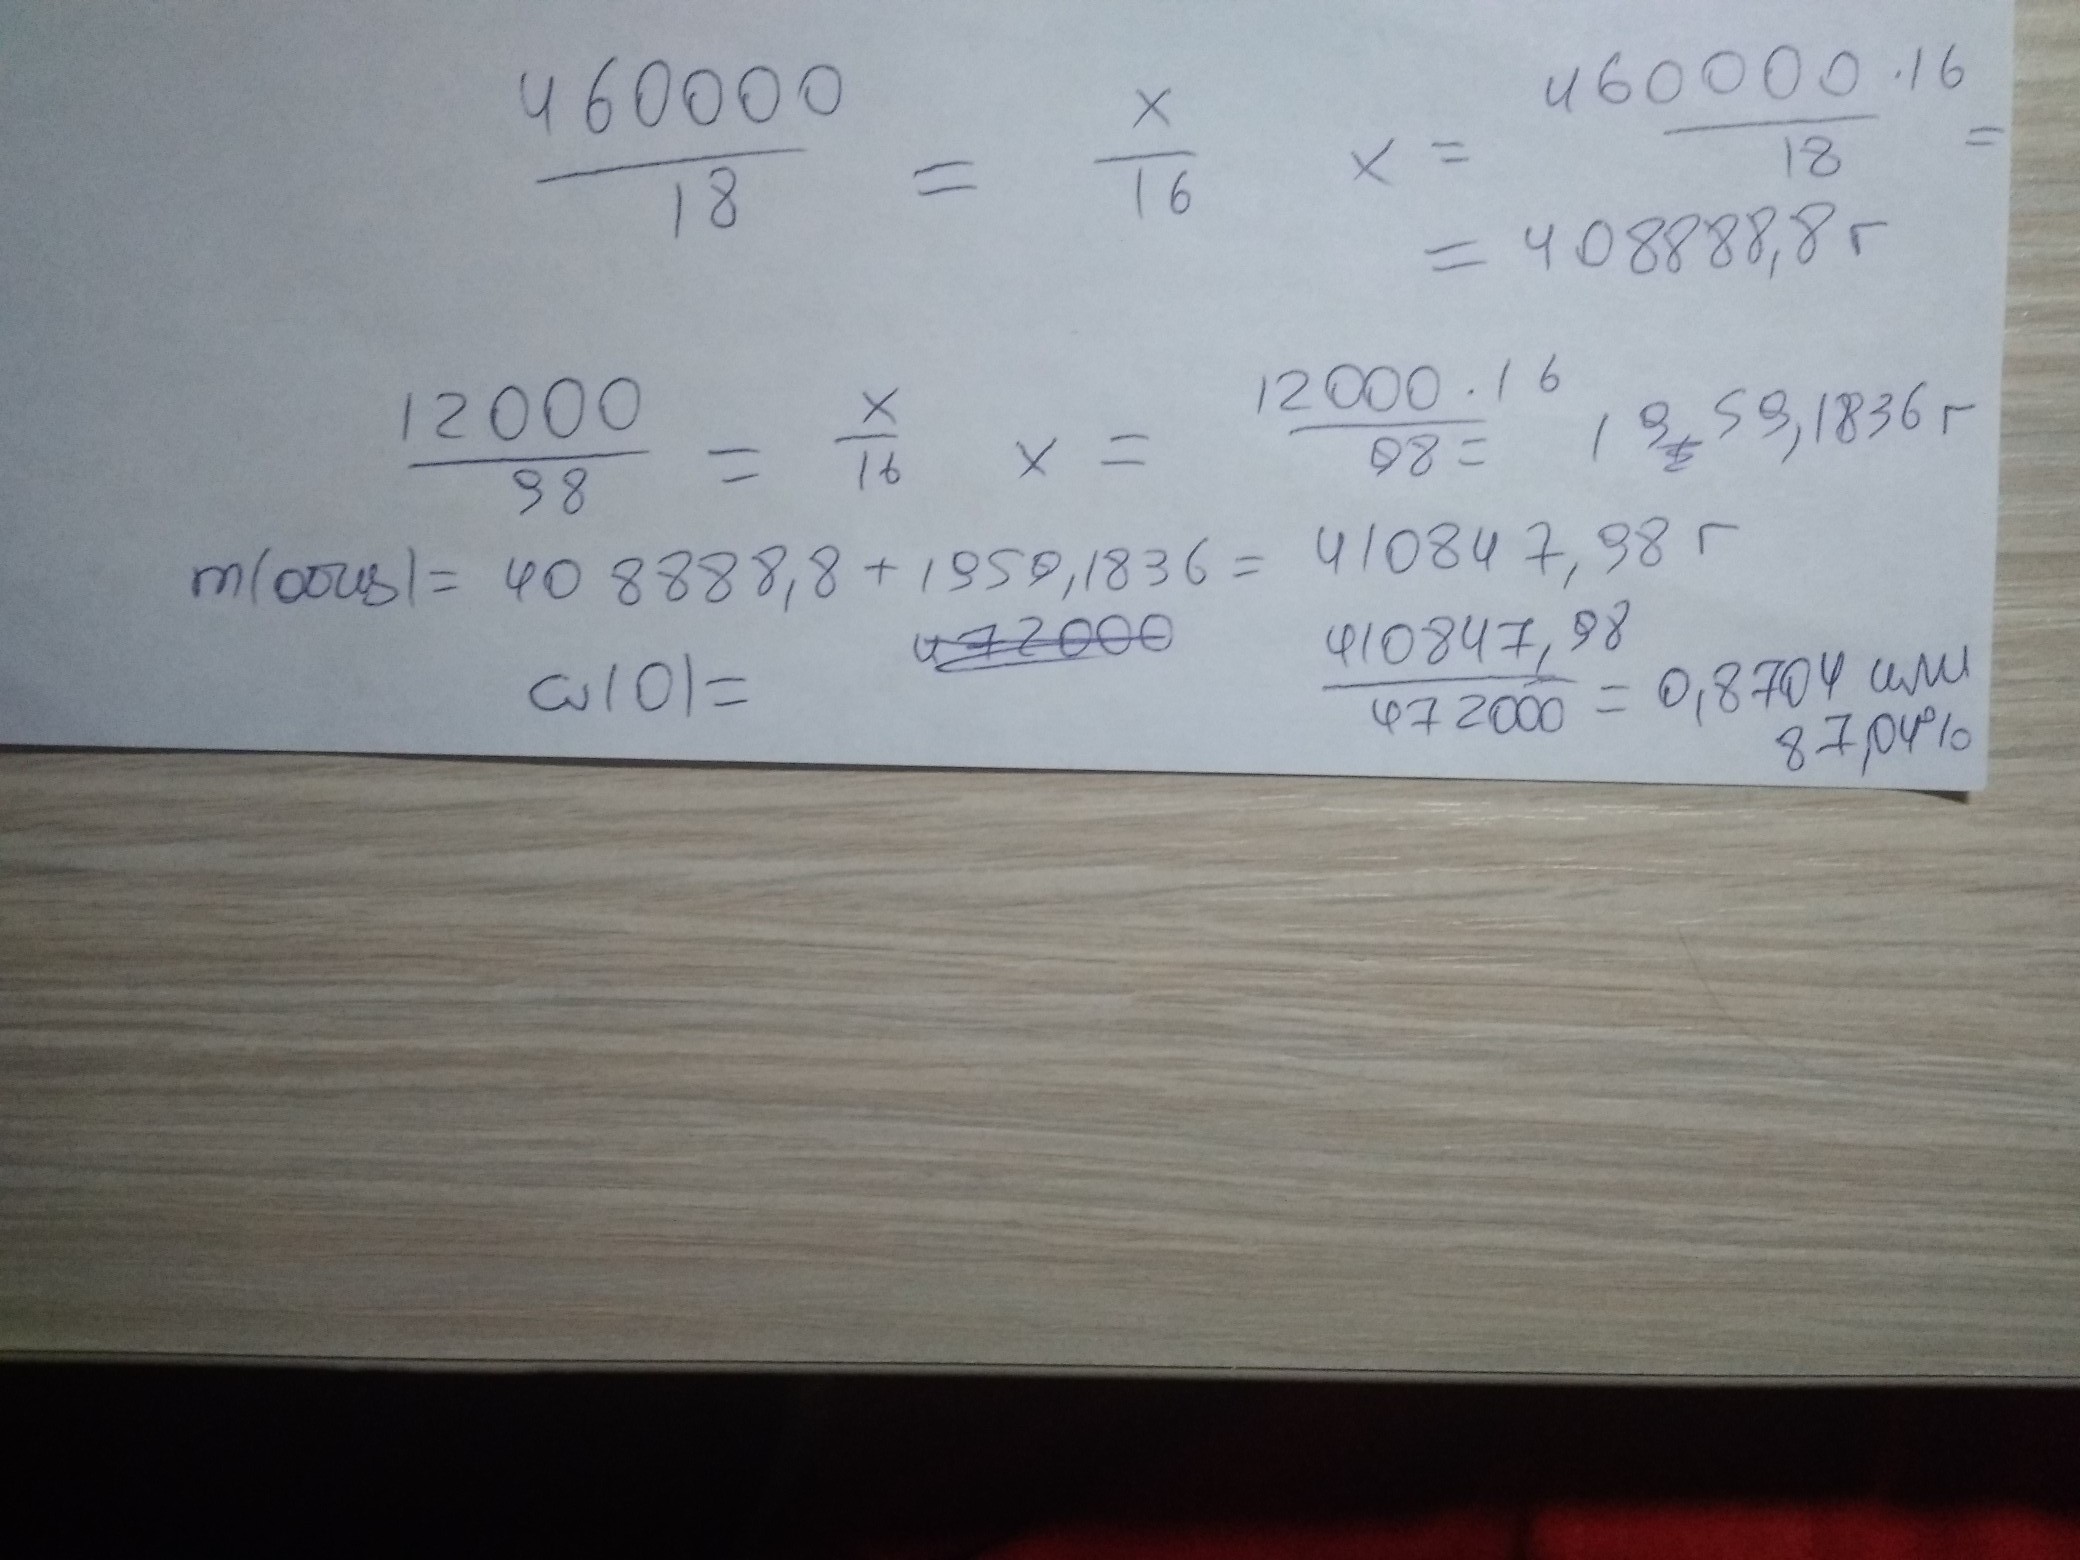 460000/18 = x/16 x = 460000·16/18 =
= 408888,8 г
12000/98 = x/16 x = 12000·16/98 = 1959,1836 г
m(общ) = 408888,8 + 1959,1836 = 410847,98 г
ω(O) = 410847,98/472000 = 0,8704 или
87,04%